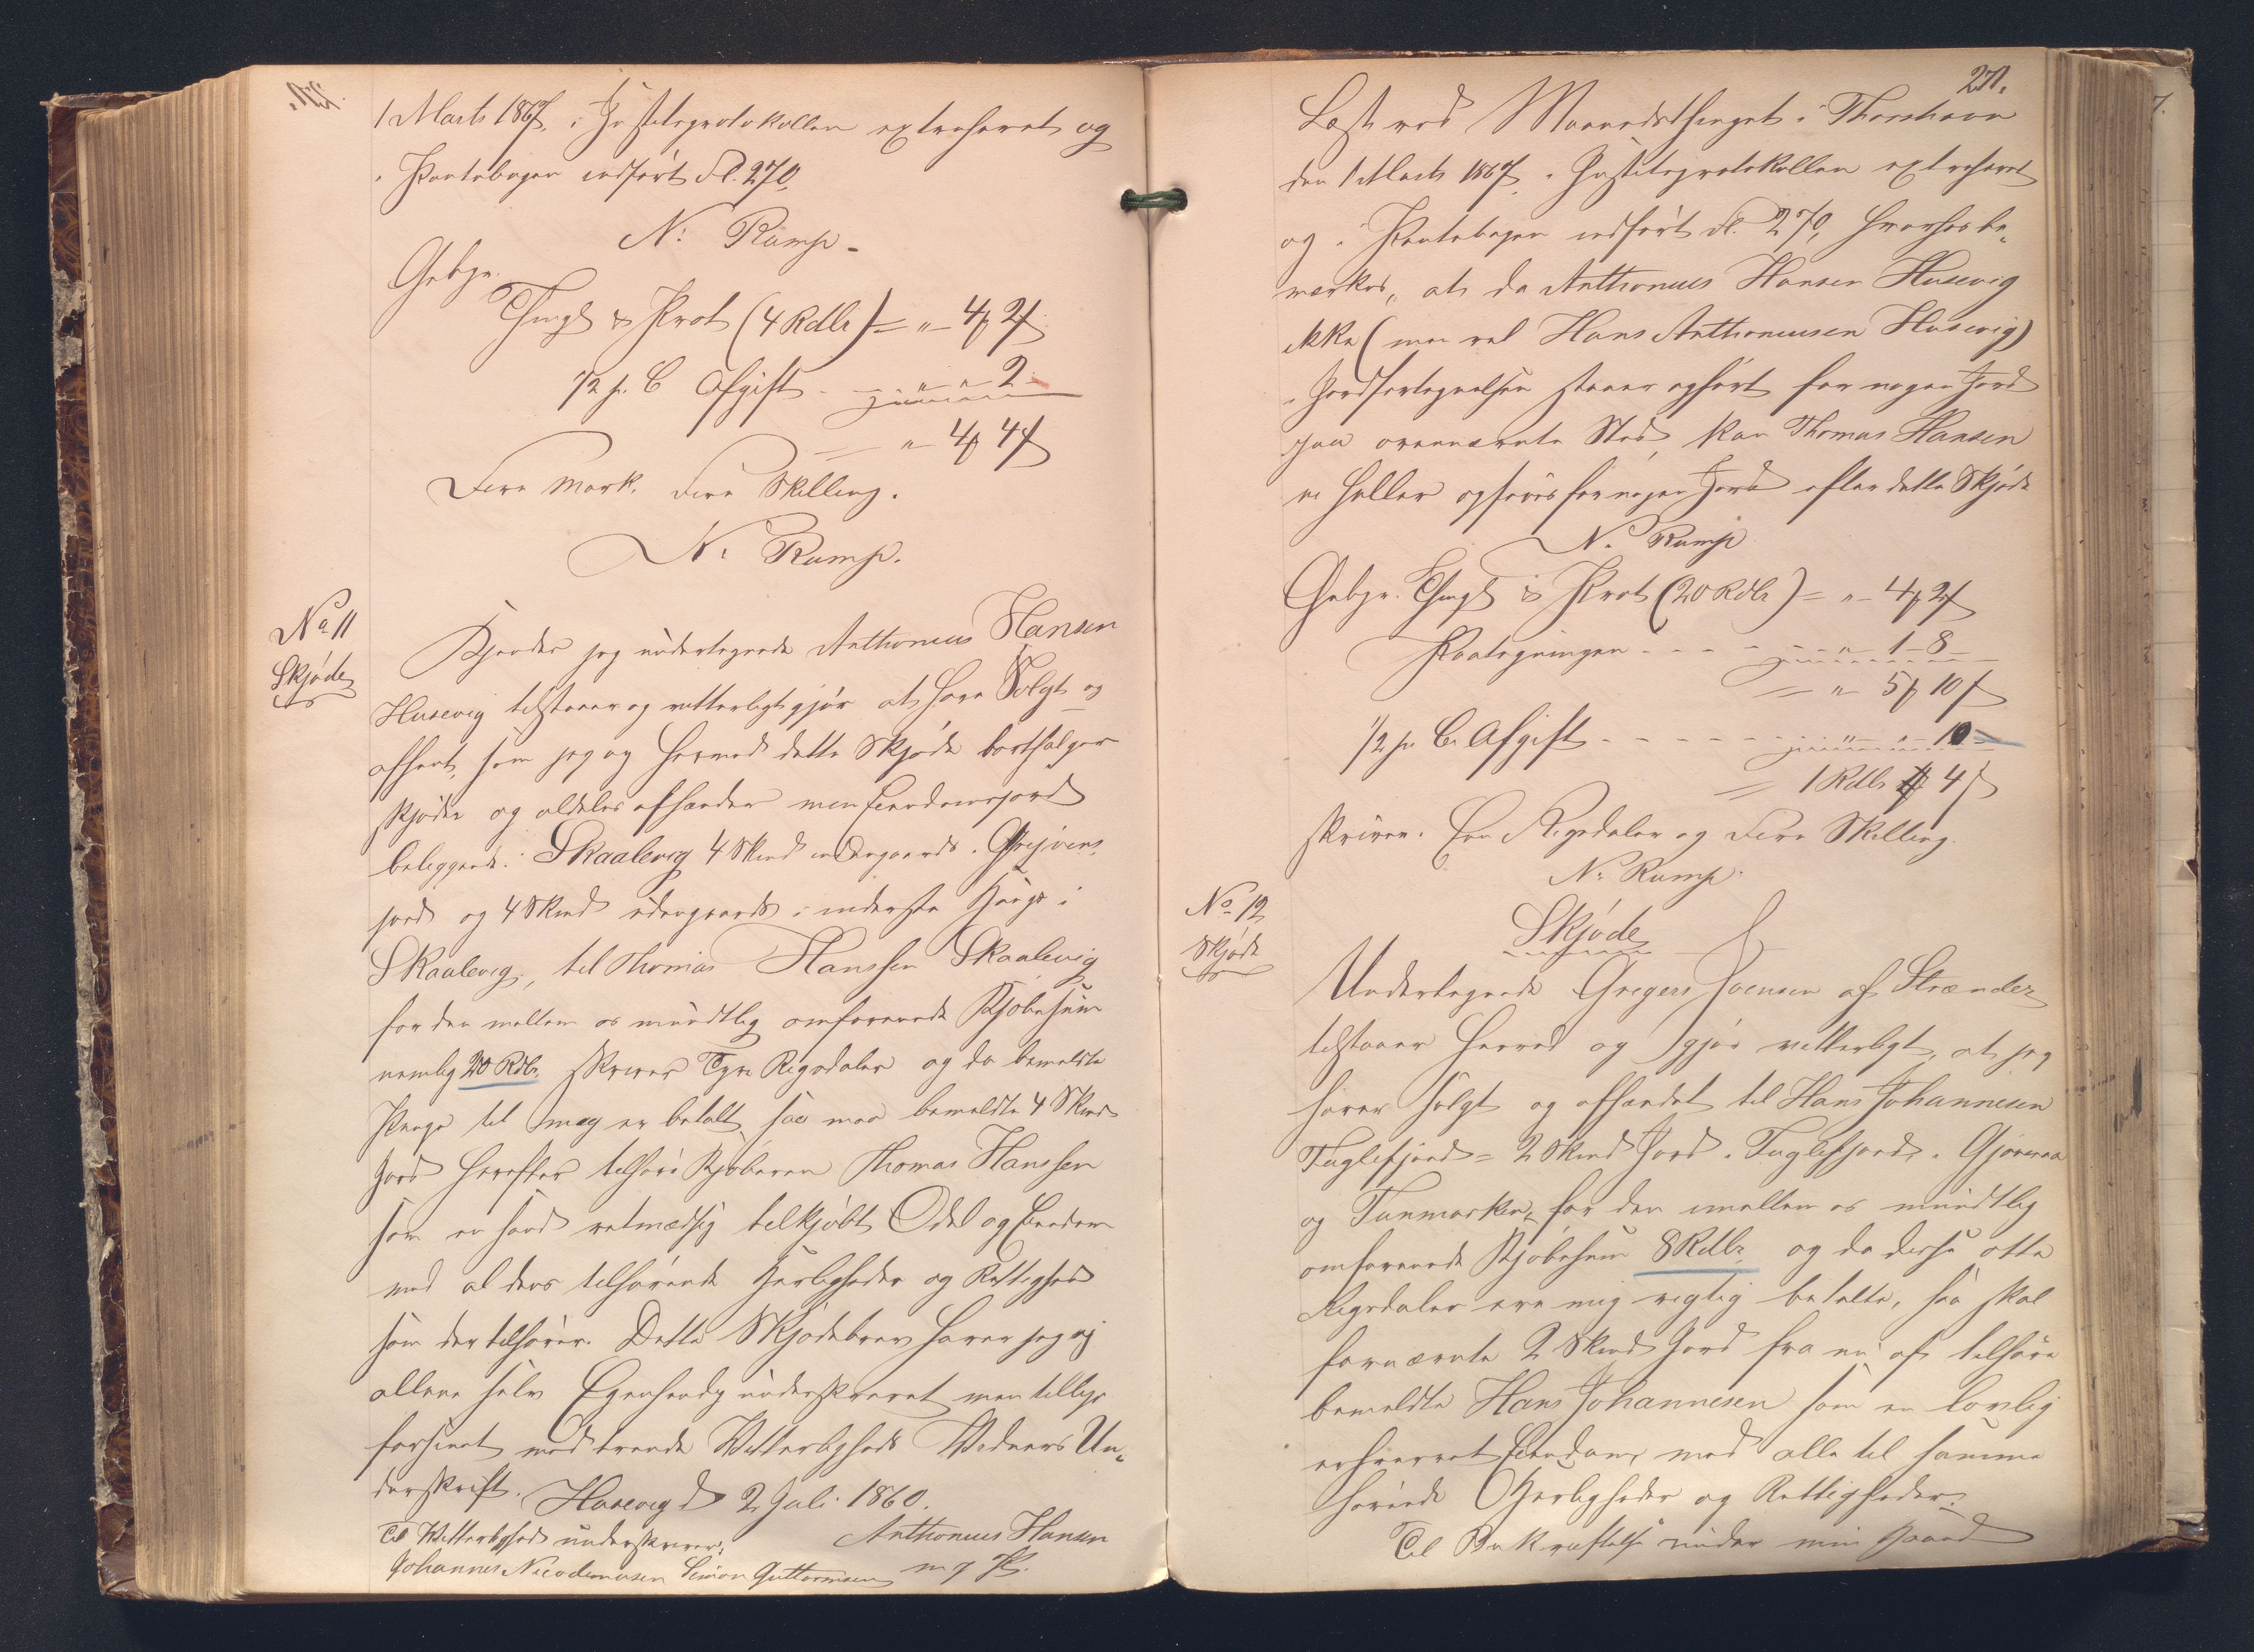 1 Marts 1867, i Justitsprotokollen extraheret og
i Pantebogen indført Fl. 270.
N. Rump.
Gebyr.
Thingl & Prot (4 Rdlr) = " 4 ₰ 2 ſ
1/2 p. C Afgift - " " 2
" 4 ₰ 4 ſ
Fire Mark. Fire Skilling.
N. Rump.
No 11
Skjøde
Kjendes jeg undertegnede Anthonius Hansen
Husevig tilstaaer og vitterligtgjør at have Solgt og
afhent, som jeg og hermed dette Skjøde bortsælger
skjøder og aldeles afhænder min Eiendomsjord
beliggende i Skaalevig 4 Skind indengaards i
jord og 4 Skind udengaards i inderste Hauge i
Skaalevig, til Thomas Hanssen Skaalevig
for den mellem os mundtlig omforenede Kjøbesum
nemlig 20 Rdlr. skriver Tyve Rigsdaler og da bemeldte
Penge til mig er betalt, saa maa bemeldte 4 Skind
Jord herefter tilhøre Kjøberen Thomas Hanssen
som en sand retmæssig tilkjøbt Odel og Eiendom
med al dens tilhørende Herligheder og Rettighed
som der tilhører. Dette Skjødebrev haver jeg ej
allene selv Egenhændig underskrevet men tillige
forsinet med trende Vitterligheds Vidners Un-
derskrift. Husevig d 2 Juli 1860.
Til Vitterlighed underskriver: Anthonius Hansen
Johannes Nicodemusen Simon Guttormsen m. f. P.
271.
Læst ved Maanedsthinget i Thorshavn
den 1 Marts 1867, i Justitsprotokollen extraheret
og i Pantebogen indført Fl. 270, hvorhos be-
mærkes, at da Anthonius Hansen Husevig
ikke (men vel Hans Anthoniusen Husevig)
i Jordfortegnelsen staaer opført for nogen Jord
paa ovennævnte Sted, kan Thomas Hansen
ei heller opføres for nogen Jord efter dette Skjøde
N. Rump
Gebyr. Thingl & Prot (20 Rdlr) = " 4 ₰ 2 ſ
Paategningen - - - " 1 - 8
= " 5 ₰ 10 ſ
1/2 p. C. Afgift - - - " " 10
= 1 Rdlr 4 ſ
skriver. Een Rigsdaler og Fire Skilling.
N. Rump.
No 12
Skjøde
Skjøde
Undertegnede Gregers Joensen af Strænder
tilstaaer herved og gjør vitterligt, at jeg
haver solgt og afhændet til Hans Johannesen
Fuglefjord = 2 Skind Jord i Fuglefjord, i Gjøreraa
og Tunmarken, for den imellem os mundtlig
omforenede Kjøbesum 8 Rdlr. og da disse otte
Rigsdaler ere mig rigtig betalte, saa skal
fornævnte 2 Skind Jord fra nu af tilhøre
bemeldte Hans Johannesen som en lovlig
erhvervet Eiendom, med alle til samme
hørende Herligheder og Rettigheder.
Til Bekræftelse under min Haand